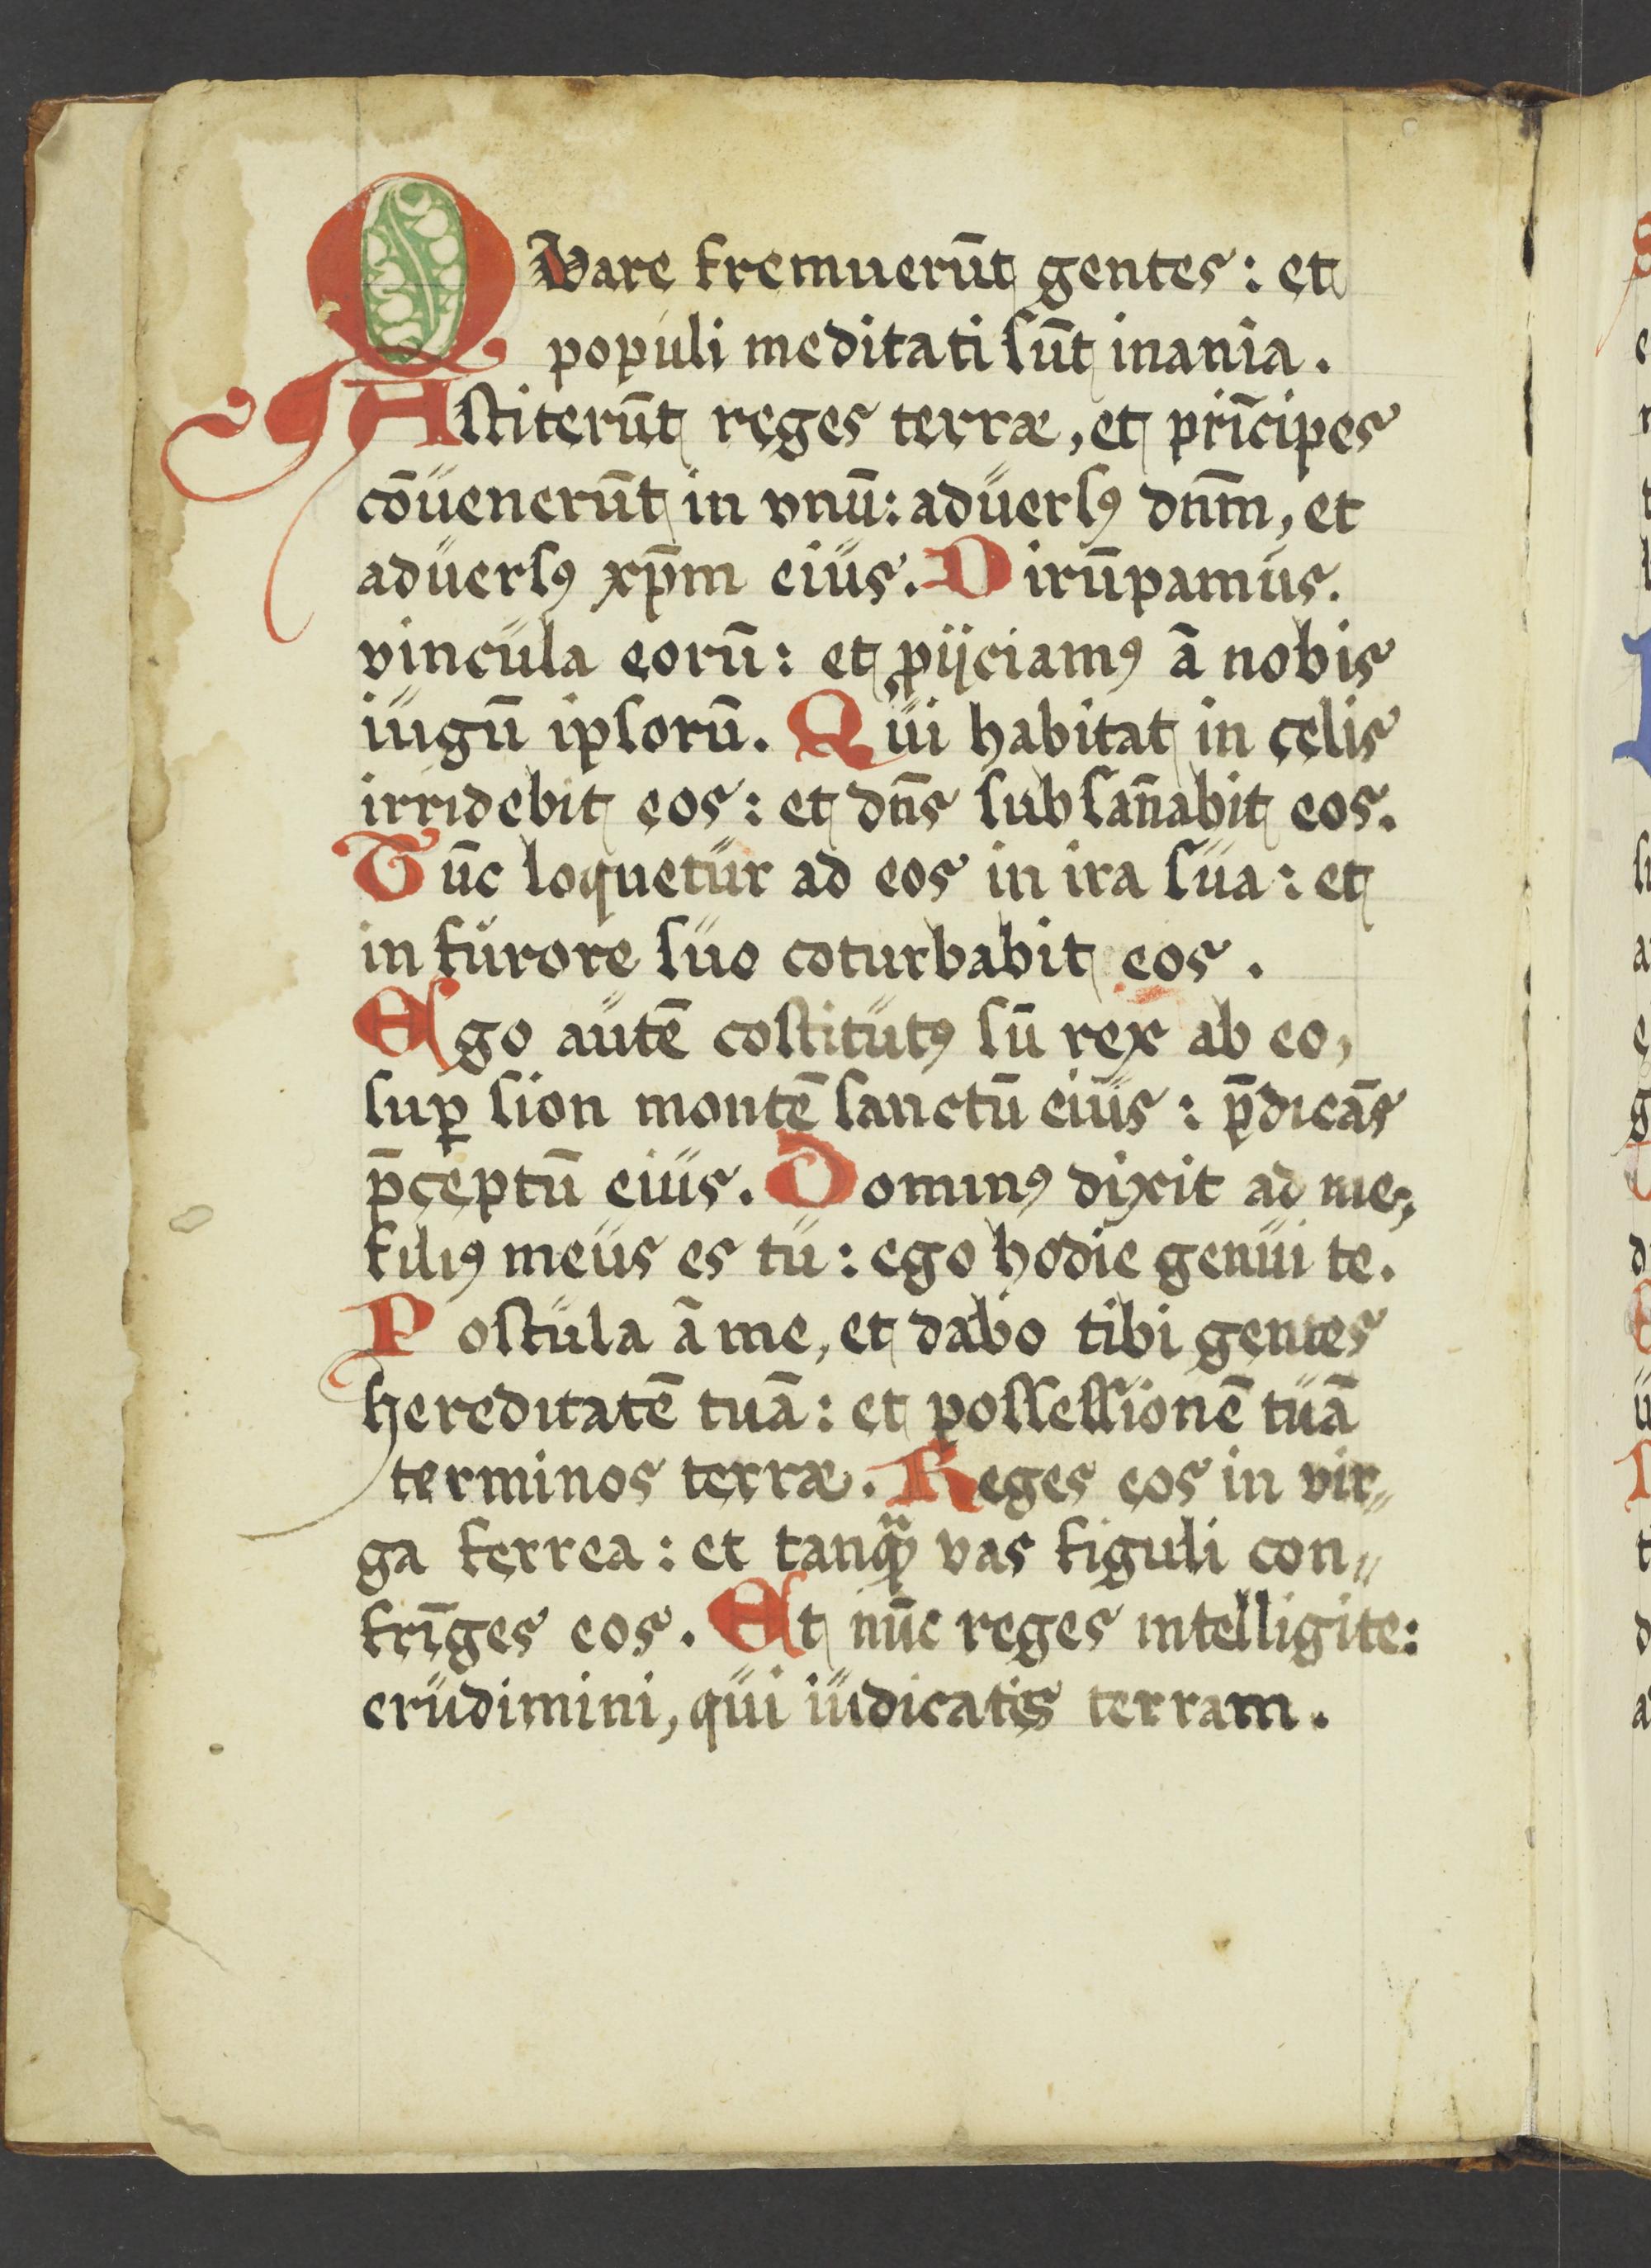 QVare fremuerūt gentes: et
populi meditati ſūt inania.
Aſtiterūt reges terræ, et prīcipes
cōuenerūt in vnū: aduerſꝰ dnm̄, et
aduerſꝰ xp̄m eius. Dirūpamus.
vincula eorū: et ꝓijciamꝰ ā nobis
iugū ipſorū. Qui habitat in cęlis
irridebit eos: et dn̄s ſubſan̄abit eos.
Tūc loquetur ad eos in ira ſua: et
in furore ſuo coturbabit eos.
Ego autē coſtitutꝰ ſū rex ab eo,
ſuꝑ ſion montē ſanctū eius: p̄dicās
p̄ceptū eius. Dominꝰ dixit ad me,
filiꝰ meus es tu: ego hodie genui te.
Poſtula ā me, et dabo tibi gentes
hereditatē tuā: et poſſeſſionē tuā
terminos terræ. Reges eos in vir„
ga ferrea: et tanꝙ̃ vas figuli con„
frīges eos. Et nūc reges intelligite:
erudimini, qui iudicatis terram.